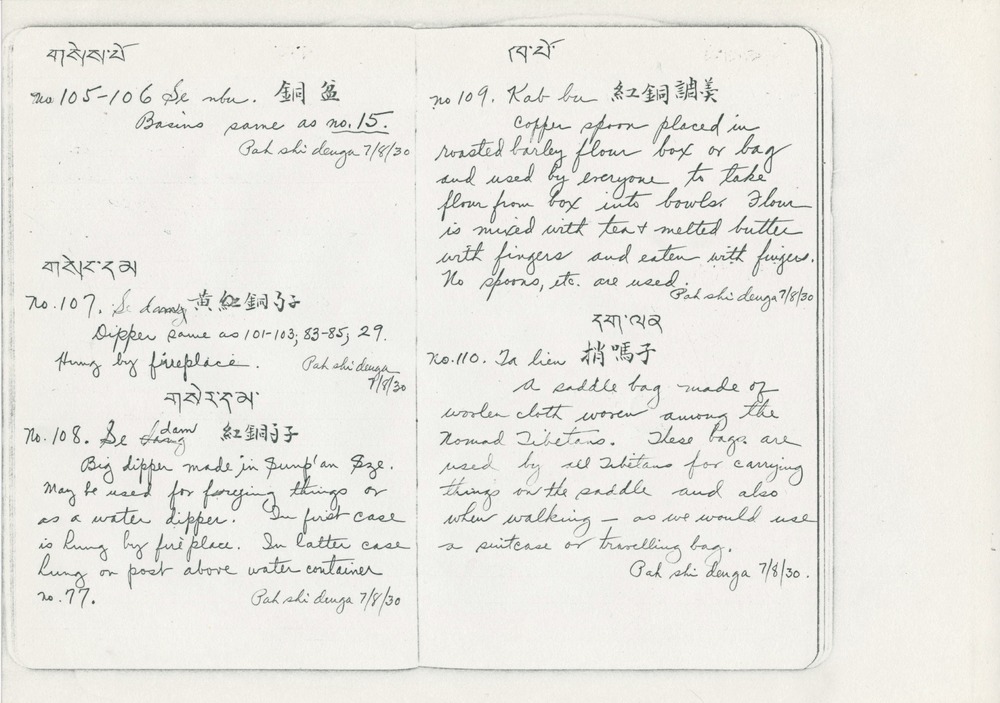 No. 105-106 Se nbu. 銅盆
Basins same as no. 15.
Pah shi denga 7/8/30
No. 107. Se 黄紅銅
Dipper same as 101-103, 83-85, 29.
Hung by fireplace.
Pah shi denga
7/8/30
No. 108. Se dam 紅銅
Big dipper made in Sunp'an Sze.
May be used for things or
as a water dipper. In first case
is hung by fireplace. In latter case
hung on post above water container
no. 77.
Pah shi denga 7/8/30
ཁབ་པོ་
no 109. Kab bu 紅銅調羹
Copper spoon placed in
roasted barley flour box or bag
and used by everyone to take
flour from box into bowls. Flour
is mixed with tea + melted butter
with fingers and eaten with fingers.
No spoons, etc. are used.
Pah shi denga 7/8/30
No. 110. Ta lien 捎嗎子
A saddle bag made of
woolen cloth woven among the
Nomad Tibetans. These bags are
used by all Tibetans for carrying
things on the saddle and also
when walking — as we would use
a suitcase or travelling bag.
Pah shi denga 7/8/30.